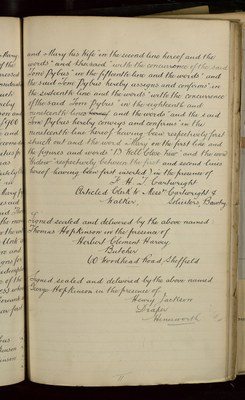 and Mary his wife in the second line hereof and the
words "and the said" "with the concurrence of the said
Tom Pybus" in the fifteenth line and the words "and
the said Tom Pybus hereby assigns and confirms" in
the sixteenth line and the words "with the concurrence
of the said Tom Pybus" in the eighteenth and
nineteenth lines and the words "and the said
Tom Pybus hereby conveys and confirms" in the
nineteenth line hereof having been respectively first
struck out and the word Mary on the first line and
the figures and words "13 Hill Close
" respectively between the first and second lines
hereof having been first inserted) in the presence of
F. H. J. Cartwright
Articled Clerk to Messrs Cartwright &
Walker, Solicitors, Bawtry
Signed sealed and delivered by the above named
Thomas Hopkinson in the presence of
Herbert Clement Harvey
Butcher
60 Woodhead Road, Sheffield
Signed sealed and delivered by the above named
George Hopkinson in the presence of
Henry Jackson
Draper
Hemsworth